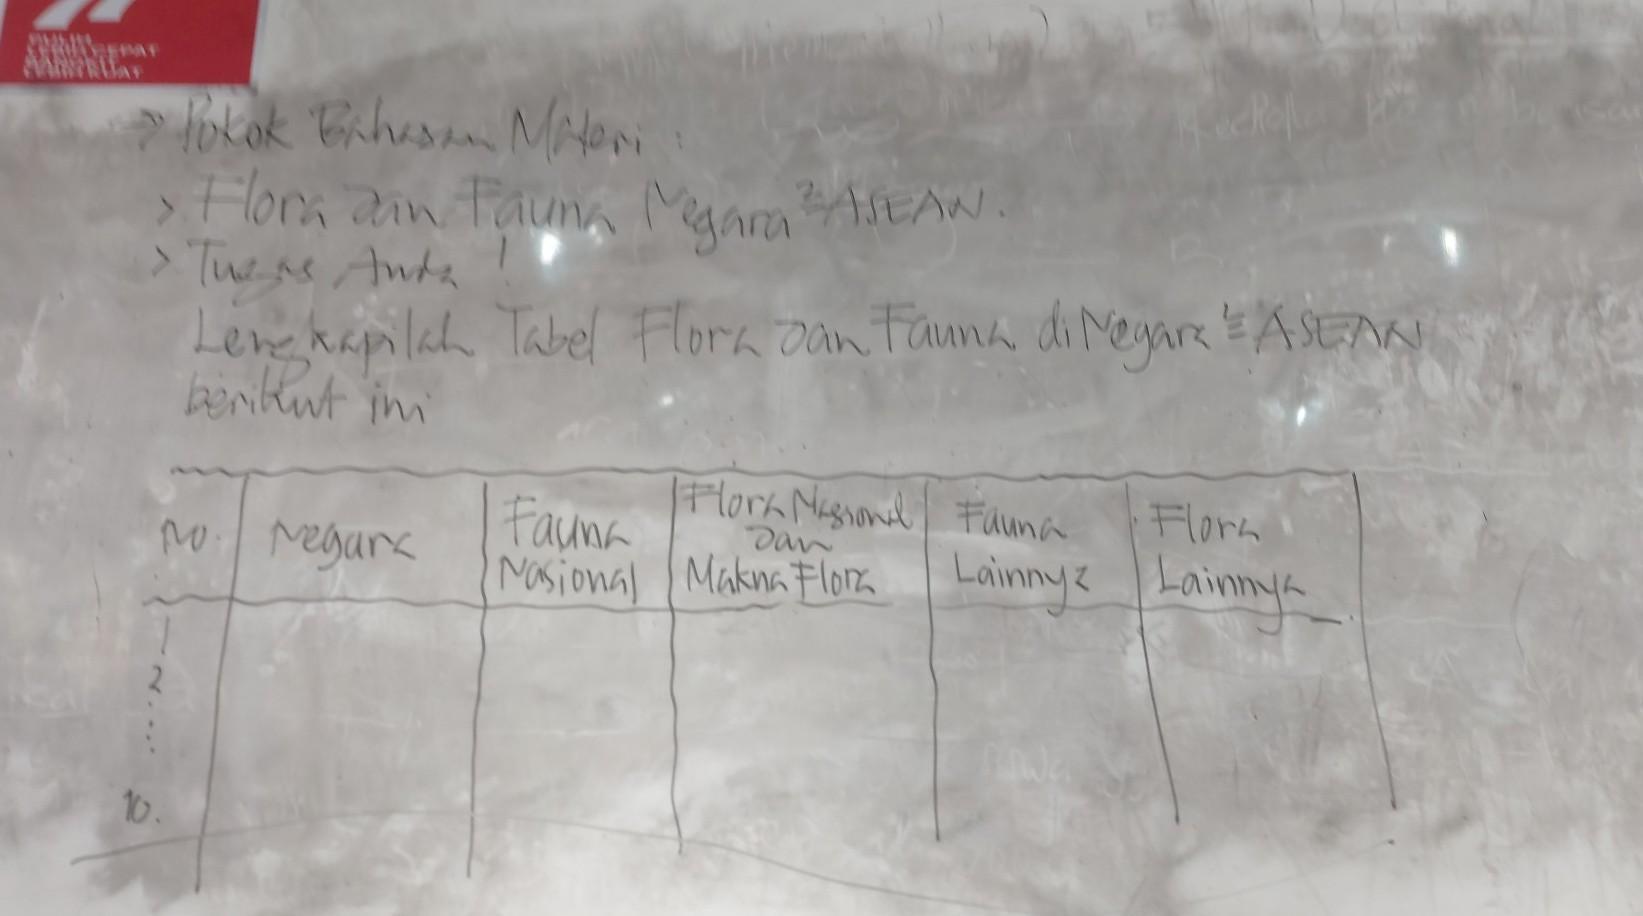 PULIH
LEBIH CEPAT
BANGKIT
LEBIH KUAT
> Pokok Bahasan Materi :
> Flora dan Fauna Negara² ASEAN.
> Tugas Anda !
Lengkapilah Tabel Flora dan Fauna di Negara² ASEAN
berikut ini
No. Negara Fauna Nasional Flora Nasional dan Makna Flora Fauna Lainnya Flora Lainnya
1
2
⋮
10.